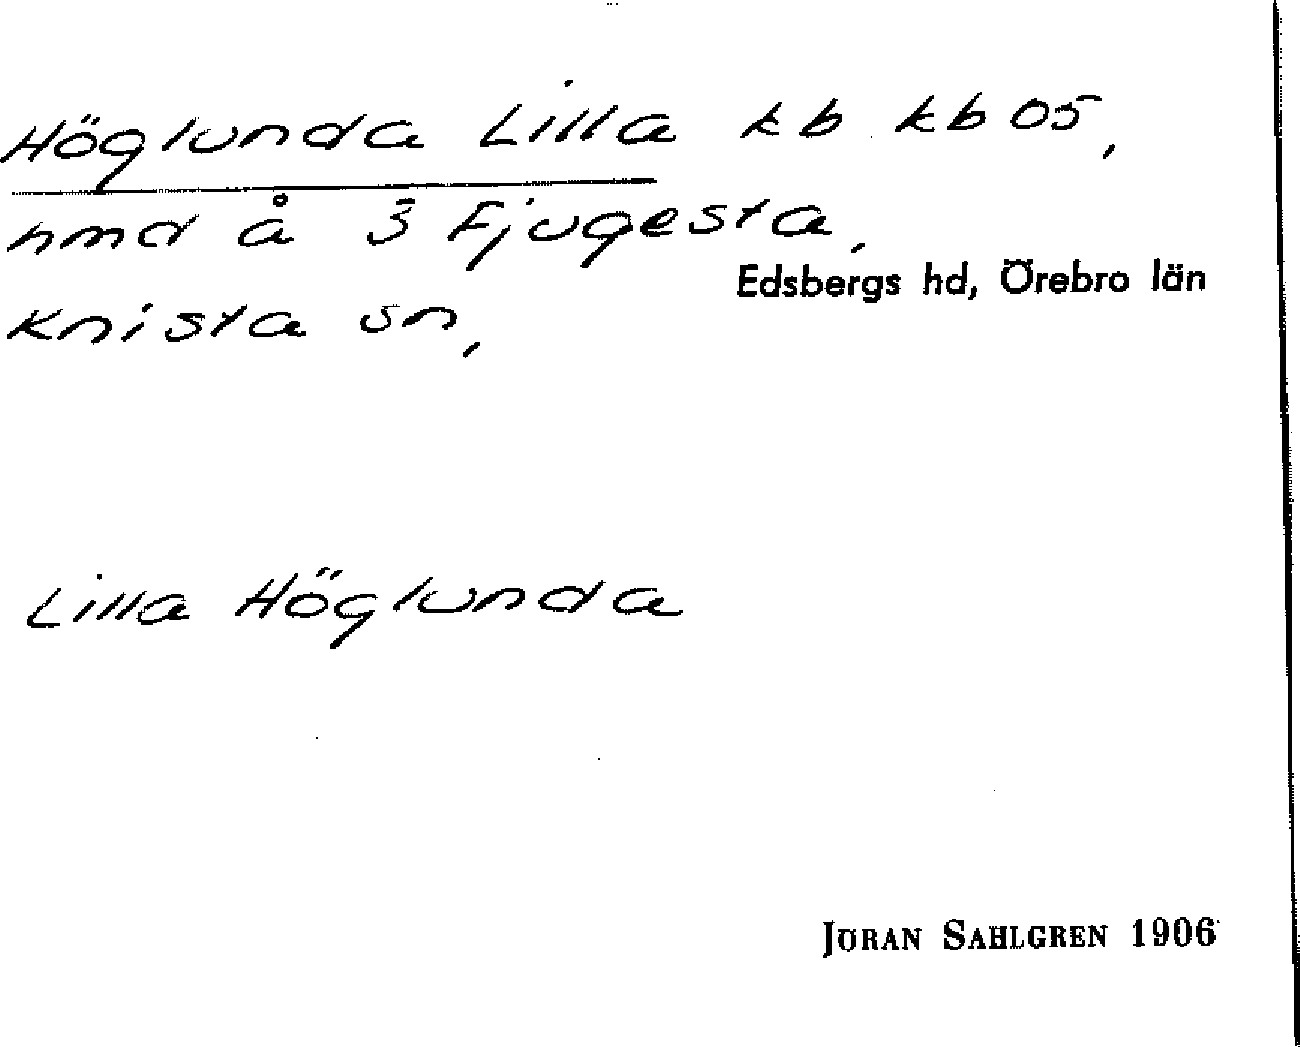 Höglunda Lilla kb kb 05,
hmd å 3 Fjugesta,
Edsbergs hd, Örebro län
Knista sn,
Lilla Höglunda
JÖRAN SAHLGREN 1906